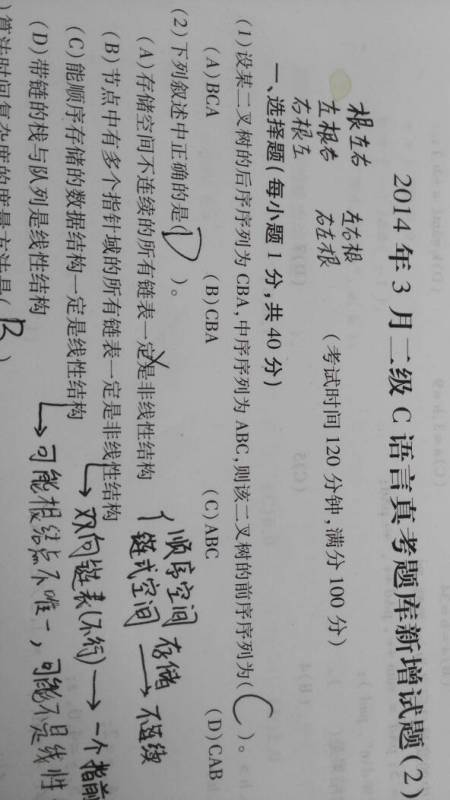 2014年3月二级C语言真考题库新增试题(2)
(考试时间120分钟,满分100分)
根左右
左根右
右根左
左右根
右左根
一、选择题(每小题1分,共40分)
(1)设某二叉树的后序序列为CBA,中序序列为ABC,则该二叉树的前序序列为( C )。
(A)BCA (B)CBA (C)ABC (D)CAB
(2)下列叙述中正确的是( D )。
(A)存储空间不连续的所有链表一定是非线性结构
(B)节点中有多个指针域的所有链表一定是非线性结构
(C)能顺序存储的数据结构一定是线性结构
(D)带链的栈与队列是线性结构
顺序空间
链式空间
存储
→不连续
→双向链表(不行)→一个指前
→可能根结点不唯一,可能不是线性
)算法时间复杂度的度量方法是( B )